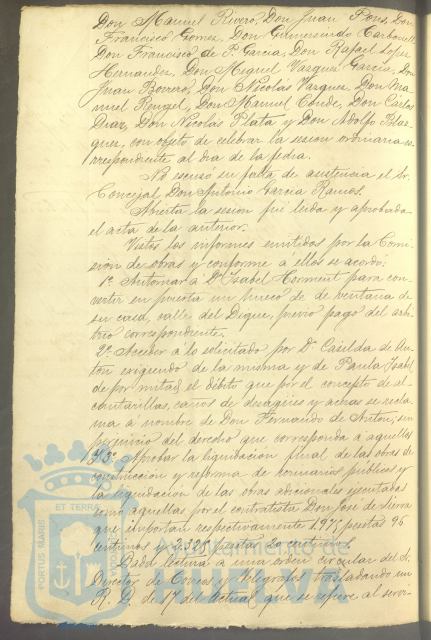 Don Manuel Rivero, Don Juan Pons, Don
Francisco Gomez, Don Gumersindo Carbonell
Don Francisco de P. Garcia, Don Rafael Lopez
Hernandez, Don Miguel Vazquez Garcia, Don
Juan Borrero, Don Nicolás Vazquez, Don Ma-
nuel Rengel, Don Manuel Conde, Don Carlos
Diaz, Don Nicolás Plata y Don Adolfo Blaz-
quez, con objeto de celebrar la sesion ordinaria co-
rrespondiente al dia de la fecha.
No escusó su falta de asistencia el Sr.
Concejal Don Antonio Garcia Ramos.
Abierta la sesion fué leida y aprobada
el acta de la anterior.
Vistos los informes emitidos por la Comi-
sion de obras y conforme á ellos se acordó:
1º Autorizar á Dª Isabel para con-
vertir en puerta un hueco de de ventana de
su casa, calle del Dique, previo pago del arbi-
trio correspondiente.
2º Acceder á lo solicitado por Dª Casilda de An-
ton exigiendo de la misma y de Paula Isabel
de por mitad el débito que por el concepto de al-
cantarillas, caños de desagües y aceras se recla-
ma á nombre de Don Fernando de Anton, sin
perjuicio del derecho que corresponda á aquellas
Y 3º Aprobar la liquidacion final de las obras de
construccion y reforma de urinarios públicos y
la liquidacion de las obras adicionales ejecutadas
como aquellas por el contratista Don José de Sierra
que importan respectivamente 1.975 pesetas 96
centimos y pesetas 20 centimos
Dada lectura á una orden circular del Sr.
Director de Correos y Telégrafos trasladando un
R. D. de 17 del actual que se refiere al servi-
PORTUS MARIS ET TERRAE
Ayuntamiento de
HUELVA